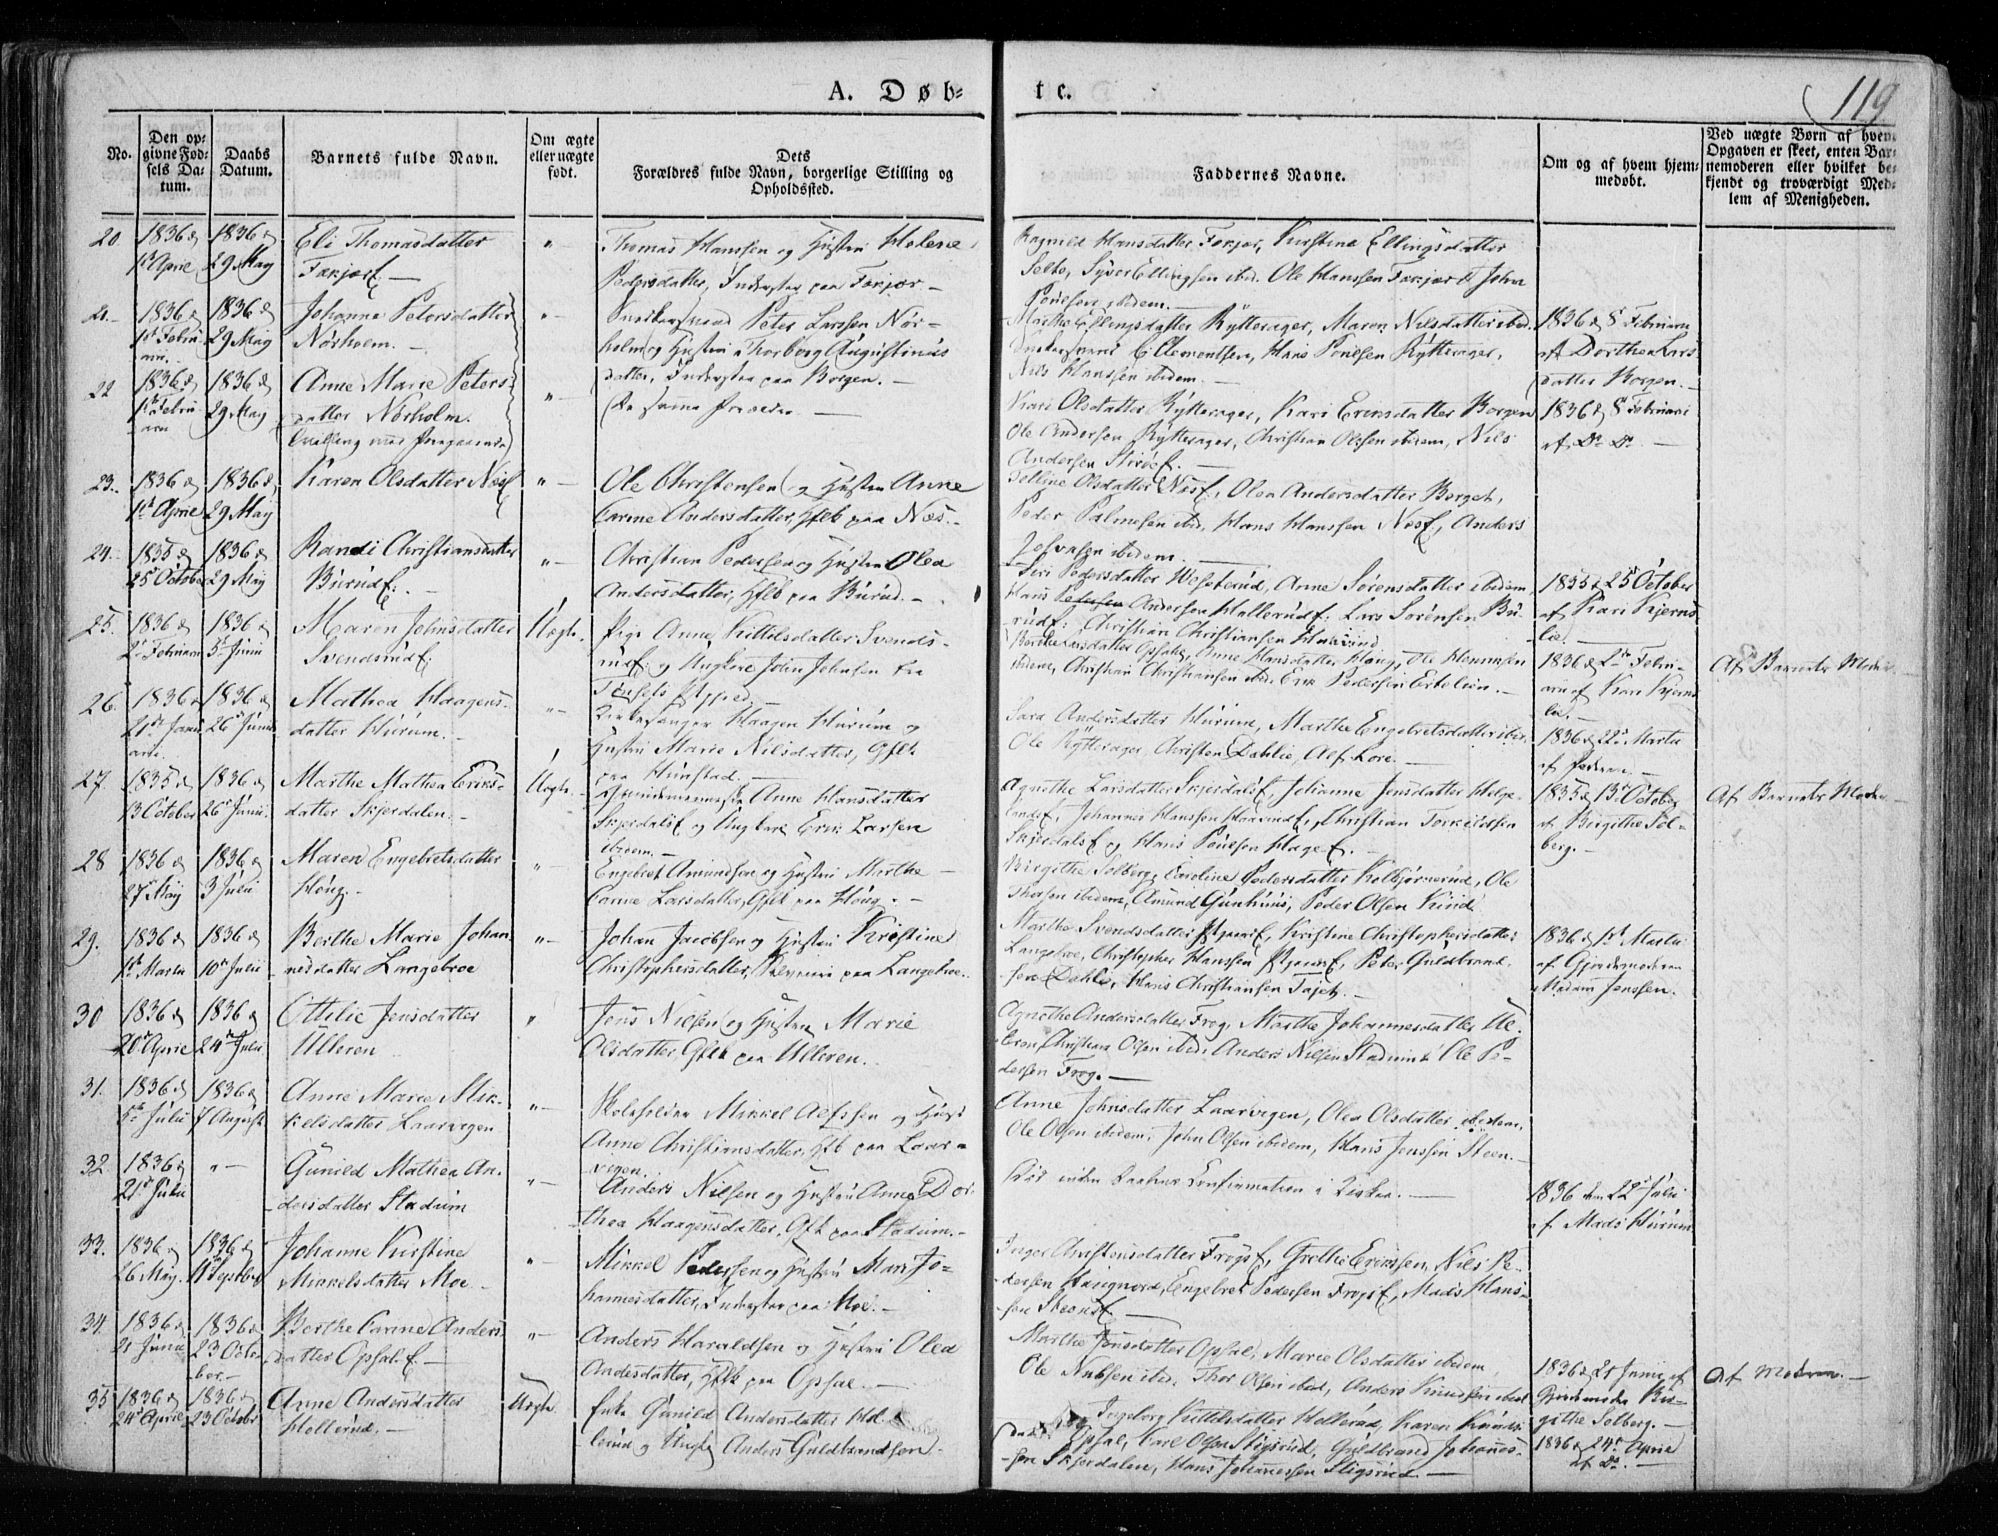 A. Døb-
te.
119
No.
Den op-
givne Fød-
sels Da-
tum.
Daabs
Datum.
Barnets fulde Navn.
Om ægte
eller uægte
født.
Dets
Forældres fulde Navn, borgerlige Stilling og
Opholdssted.
Faddernes Navne.
Om og af hvem hjem-
medøbt.
Ved uægte Børn af hvem
Opgaven er skeet, enten Bar-
nemoderen eller hvilket be-
kjendt og troværdigt Med-
lem af Menigheden.
20
1836 d
1st April
1836 d
29 May
Eli Thomasdatter
Fakjær
"-
Thomas Hanssen og Hustru Helene
Pedersdatter, Inderster paa Fakjær -
Ragnild Hansdatter Fakjær, Kirstine Ellingsdatter
Selte, Syver Ellingsen ibid. Ole Hanssen Fakjær & John
Poulsen ibidem. -
21
1836 d
1st Febru
ari.
1836 d
29 May
Johanne Petersdatter
Nørholm. -
"-
Snedkersvend Peter Larssen Nør-
holm og Hustru Thorborg Augustinus
datter, Inderster paa Borgen. -
Marthe Ellingsdatter Rytterager, Maren Nilsdatter ibid.
Snedkersvend C. Clementsen, Hans Poulsen Rytterager,
Nils Hanssen ibidem. -
1836 d 8 Februar
af Dorthea Lars
datter Borgen. -
22
1836 d
1st Febru
ari
1836 d
29 May
Anne Marie Peters-
datter Nørholm.
Tvilling med Foregaaende
"-
De samme Forældre -
Kari Olsdatter Rytterager, Kari Eriksdatter Borgen
Ole Andersen Rytterager, Christian Olssen ibidem, Nils
Andersen
1836 d 8 Februari
af Do Do. -
23.
1836 d
1st April
1836 d
29 May
Karen Olsdatter Næs
"-
Ole Christensen og Hustru Anne
Carine Andersdatter, Hflk paa Næs. -
Olsdatter Næs, Olea Andersdatter Borget,
Peder Palmesen ibid, Hans Hanssen Næs, Anders
ibidem
24.
1835 d
25 October
1836 d
29 May
Randi Christiansdatter
Burud. -
"-
Christian Pedersen og Hustru Olea
Andersdatter, Hflk paa Burud. -
Siri Pedersdatter Westerud, Anne Sørensdatter ibidem,
Hans Pedersen Andersen Hallerud, Lars Sørensen Bu-
rud, Christian Christiansen
1835 d 25 October
af Kari Kjerns-
lie. -
25.
1836 d
2 Februar
1836 d
5 Juni
Maren Johnsdatter
Svendsrud.
Uægte.
Pige Anne Kittilsdatter Svends-
rud og Ungkarl John Johnsen fra
Berthe Larsdatter Opsahl, Anne Hansdatter Houg, Ole Hemmsen
ibidem, Christian Christiansen ibid. Erik Pedersen Erteløen. -
1836 d 2 Febru-
ari af Kari Kjerns
lie. -
Af Barnets Moder
26.
1836 d
21st Janu
ari.
1836 d
26 Juni
Mathea Haagens-
datter Hurum. -
"-
Kirkesanger Haagen Hurum og
Hustru Marie Nilsdatter, Gflk
paa Hunstad. -
Sara Andersdatter Hurum, Marthe Engebretsdatter ibid.
Ole Rytterager, Christen Dahlie, Alf Lore. -
1836 d 22 Martii
af
27
1835 d
13 October
1836 d
26 Juni
Marthe Mathea Eriks-
datter Skjerdalen. -
Uægte.
Anne Hansdatter
Skjerdals og Ungkarl Erik Larsen
ibidem. -
Agnethe Larsdatter Skjerdals, Johanne Jensdatter Helge-
land, Johannes Hanssen Haverud, Christian Torkildsen
Skjerdals og Hans Poulsen Hage. -
1835 d 13 October
af Birgithe Sol-
berg. -
Af Barnets Moder -
28
1836 d
27 May
1836 d
3 Julii
Maren Engebretsdatter
Houg. -
"
Engebret Amundsen og Hustru Marthe
Carine Larsdatter, Gflk paa Houg. -
Birgithe Solberg, Caroline Pedersdatter Kolbjørnsrud, Ole
Thorsen ibidem, Amund Gunhus, Peder Olsen Rud.
29.
1836 d
1st Martii
1836 d
10 Julii
Berthe Marie Johan-
nesdatter Langebroe
"-
Johan Jacobsen og Hustru Kristine
Christophersdatter, paa Langebroe.
Marthe Svendsdatter, Kirstine Christophersdatter
Langebroe, Christopher Hanssen, Peter Guldbrand-
sen Dahle, Hans Christiansen Tajet. -
1836 d 1st Martii
af Gjordemoderen
Madam Jenssen.
30
1836 d
20 April
1836 d
24 Julii
Ottilie Jensdatter
Ulleren
"
Jens Nielsen og Hustru Marie
Olsdatter, Gflk paa Ulleren. -
Agnethe Andersdatter Frog, Marthe Johannesdatter Ul-
leren, Christian Olsen ibid. Anders Nielsen Stadum & Ole Pe-
dersen Frog. -
31.
1836 d
5 Julii
1836 d
7 August
Anne Marie Mik-
kelsdatter Laarvigen
"-
Skoleholder Mikkel Alfssen og Hust
Anne Christiansdatter, Hflk paa Laar-
vigen.
Anne Johnsdatter Laarvigen, Olea Olsdatter ibidem,
Ole Olsen ibidem, John Olsen ibidem, Hans Jenssen Steen. -
32.
1836 d
21st Julii
"-
Gunild Mathea An-
dersdatter Stadum
"-
Anders Nilsen og Hustru Anne Dor-
thea Haagensdatter, Gflk paa Stadum. -
Død inden Daabens Confirmation i Kirken. -
1836 den 22 Julii
af Mads Hurum
33.
1836 d
26 May
1836 d
11 Septbr
Johanne Kirstine
Mikkelsdatter Moe -
"-
Mikkel Pedersen og Hustru Mari Jo-
hannesdatter, Inderster paa Moe. -
Inger Christensdatter Frogs, Grethe Eriksen, Nils Pe-
dersen, Engebret Pedersen Frogs, Mads Hans-
sen Steens -
34.
1836 d
21 Junii
1836 d
23 Octo-
ber. -
Berthe Carine Anders-
datter Opsal. -
"-
Anders Haraldsen og Hustru Olea
Andersdatter, Hflk paa Opsal. -
Marthe Jensdatter Opsal, Marie Olsdatter ibidem
Ole Nubsen ibid. Thor Olsen ibid, Anders Knudsen ibid
1836 d 21 Junii af
Gjordemoder Bir-
githe Solberg. -
Af Moderen. -
35
1836 d
24 April
1836 d
23 Octobr
Anne Andersdatter
Hollerud.
Uægte.
Enke Gunild Andersdatter Hol-
lerud og Anders Guldbrandsen.
Ingeborg Kittilsdatter Hollerud, Karen Knuds-
datter Opsal, Carl Olsen Stigsrud, Guldbrand Johannes-
sen Skjerdalen, Hans Johannessen Stigsrud. -
1836 d 24 April
af Do. -